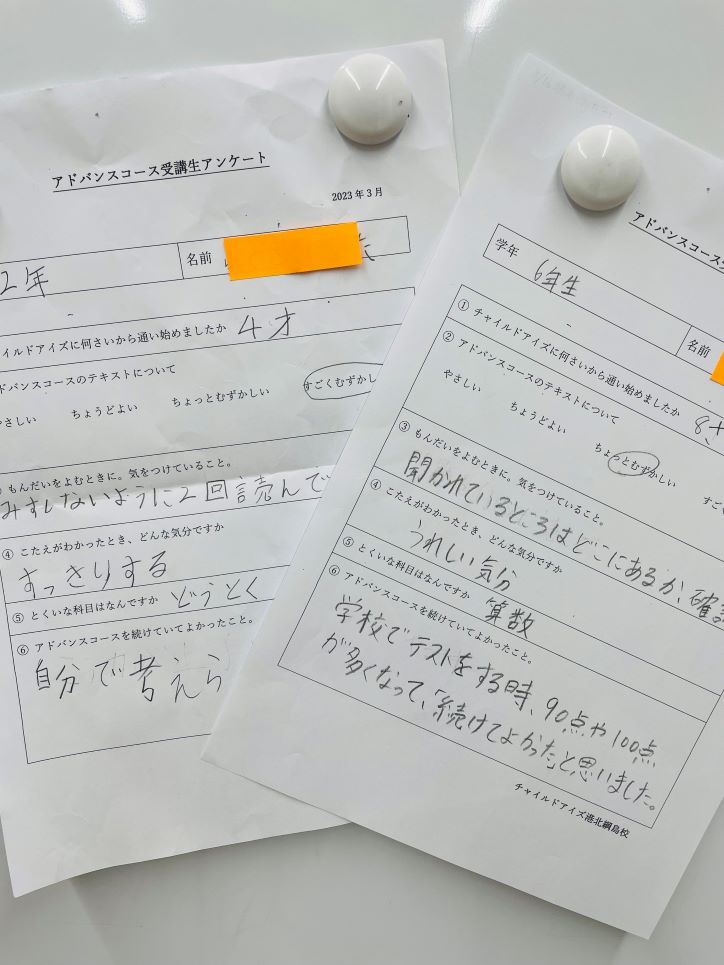 アドバンスコース受講生アンケート
2023年3月
2年
名前
イルドアイズに何さいから通い始めましたか 4才
ドバンスコースのテキストについて
やさしい ちょうどよい ちょっとむずかしい すごくむずかし
もんだいをよむときに。気をつけていること。
みすしないように2回読んで
④ こたえがわかったとき、どんな気分ですか
すっきりする
⑤ とくいな科目はなんですか どうとく
⑥ アドバンスコースを続けていてよかったこと。
自分で考えら
アドバンスコース
学年 6年生
名前
① チャイルドアイズに何さいから通い始めましたか 8才
② アドバンスコースのテキストについて
やさしい ちょうどよい ちょっとむずかしい すご
③ もんだいをよむときに。気をつけていること。
聞かれているところはどこにあるか、確認
④ こたえがわかったとき、どんな気分ですか
うれしい気分
⑤ とくいな科目はなんですか 算数
⑥ アドバンスコースを続けていてよかったこと。
学校でテストをする時、90点や100点
が多くなって、「続けてよかった」と思いました。
チャイルドアイズ港北綱島校